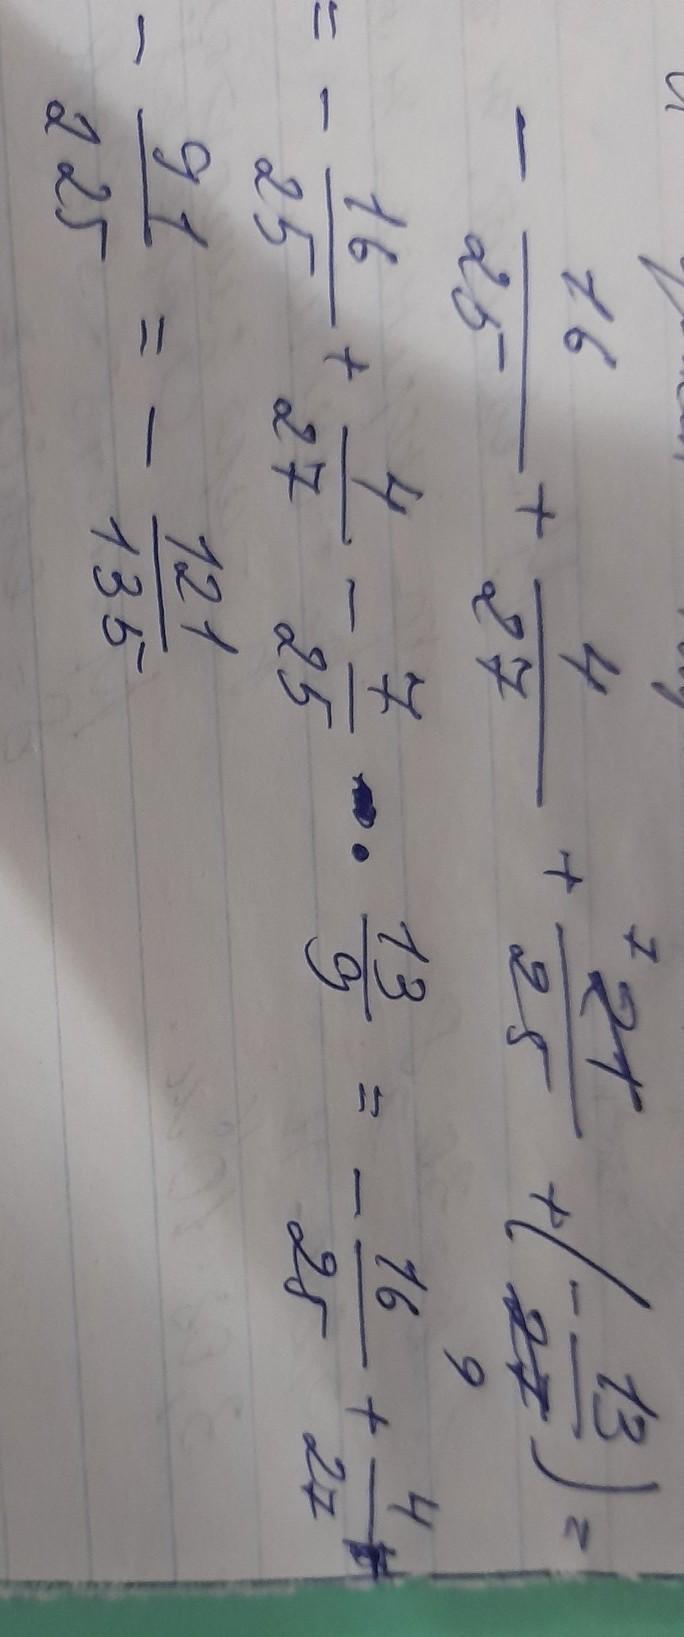 - 16/25 + 4/27 + 7 21/25 + (- 13/27 9) =
= - 16/25 + 4/27 - 7/25 · 13/9 = - 16/25 + 4/27
- 91/225 = - 121/135